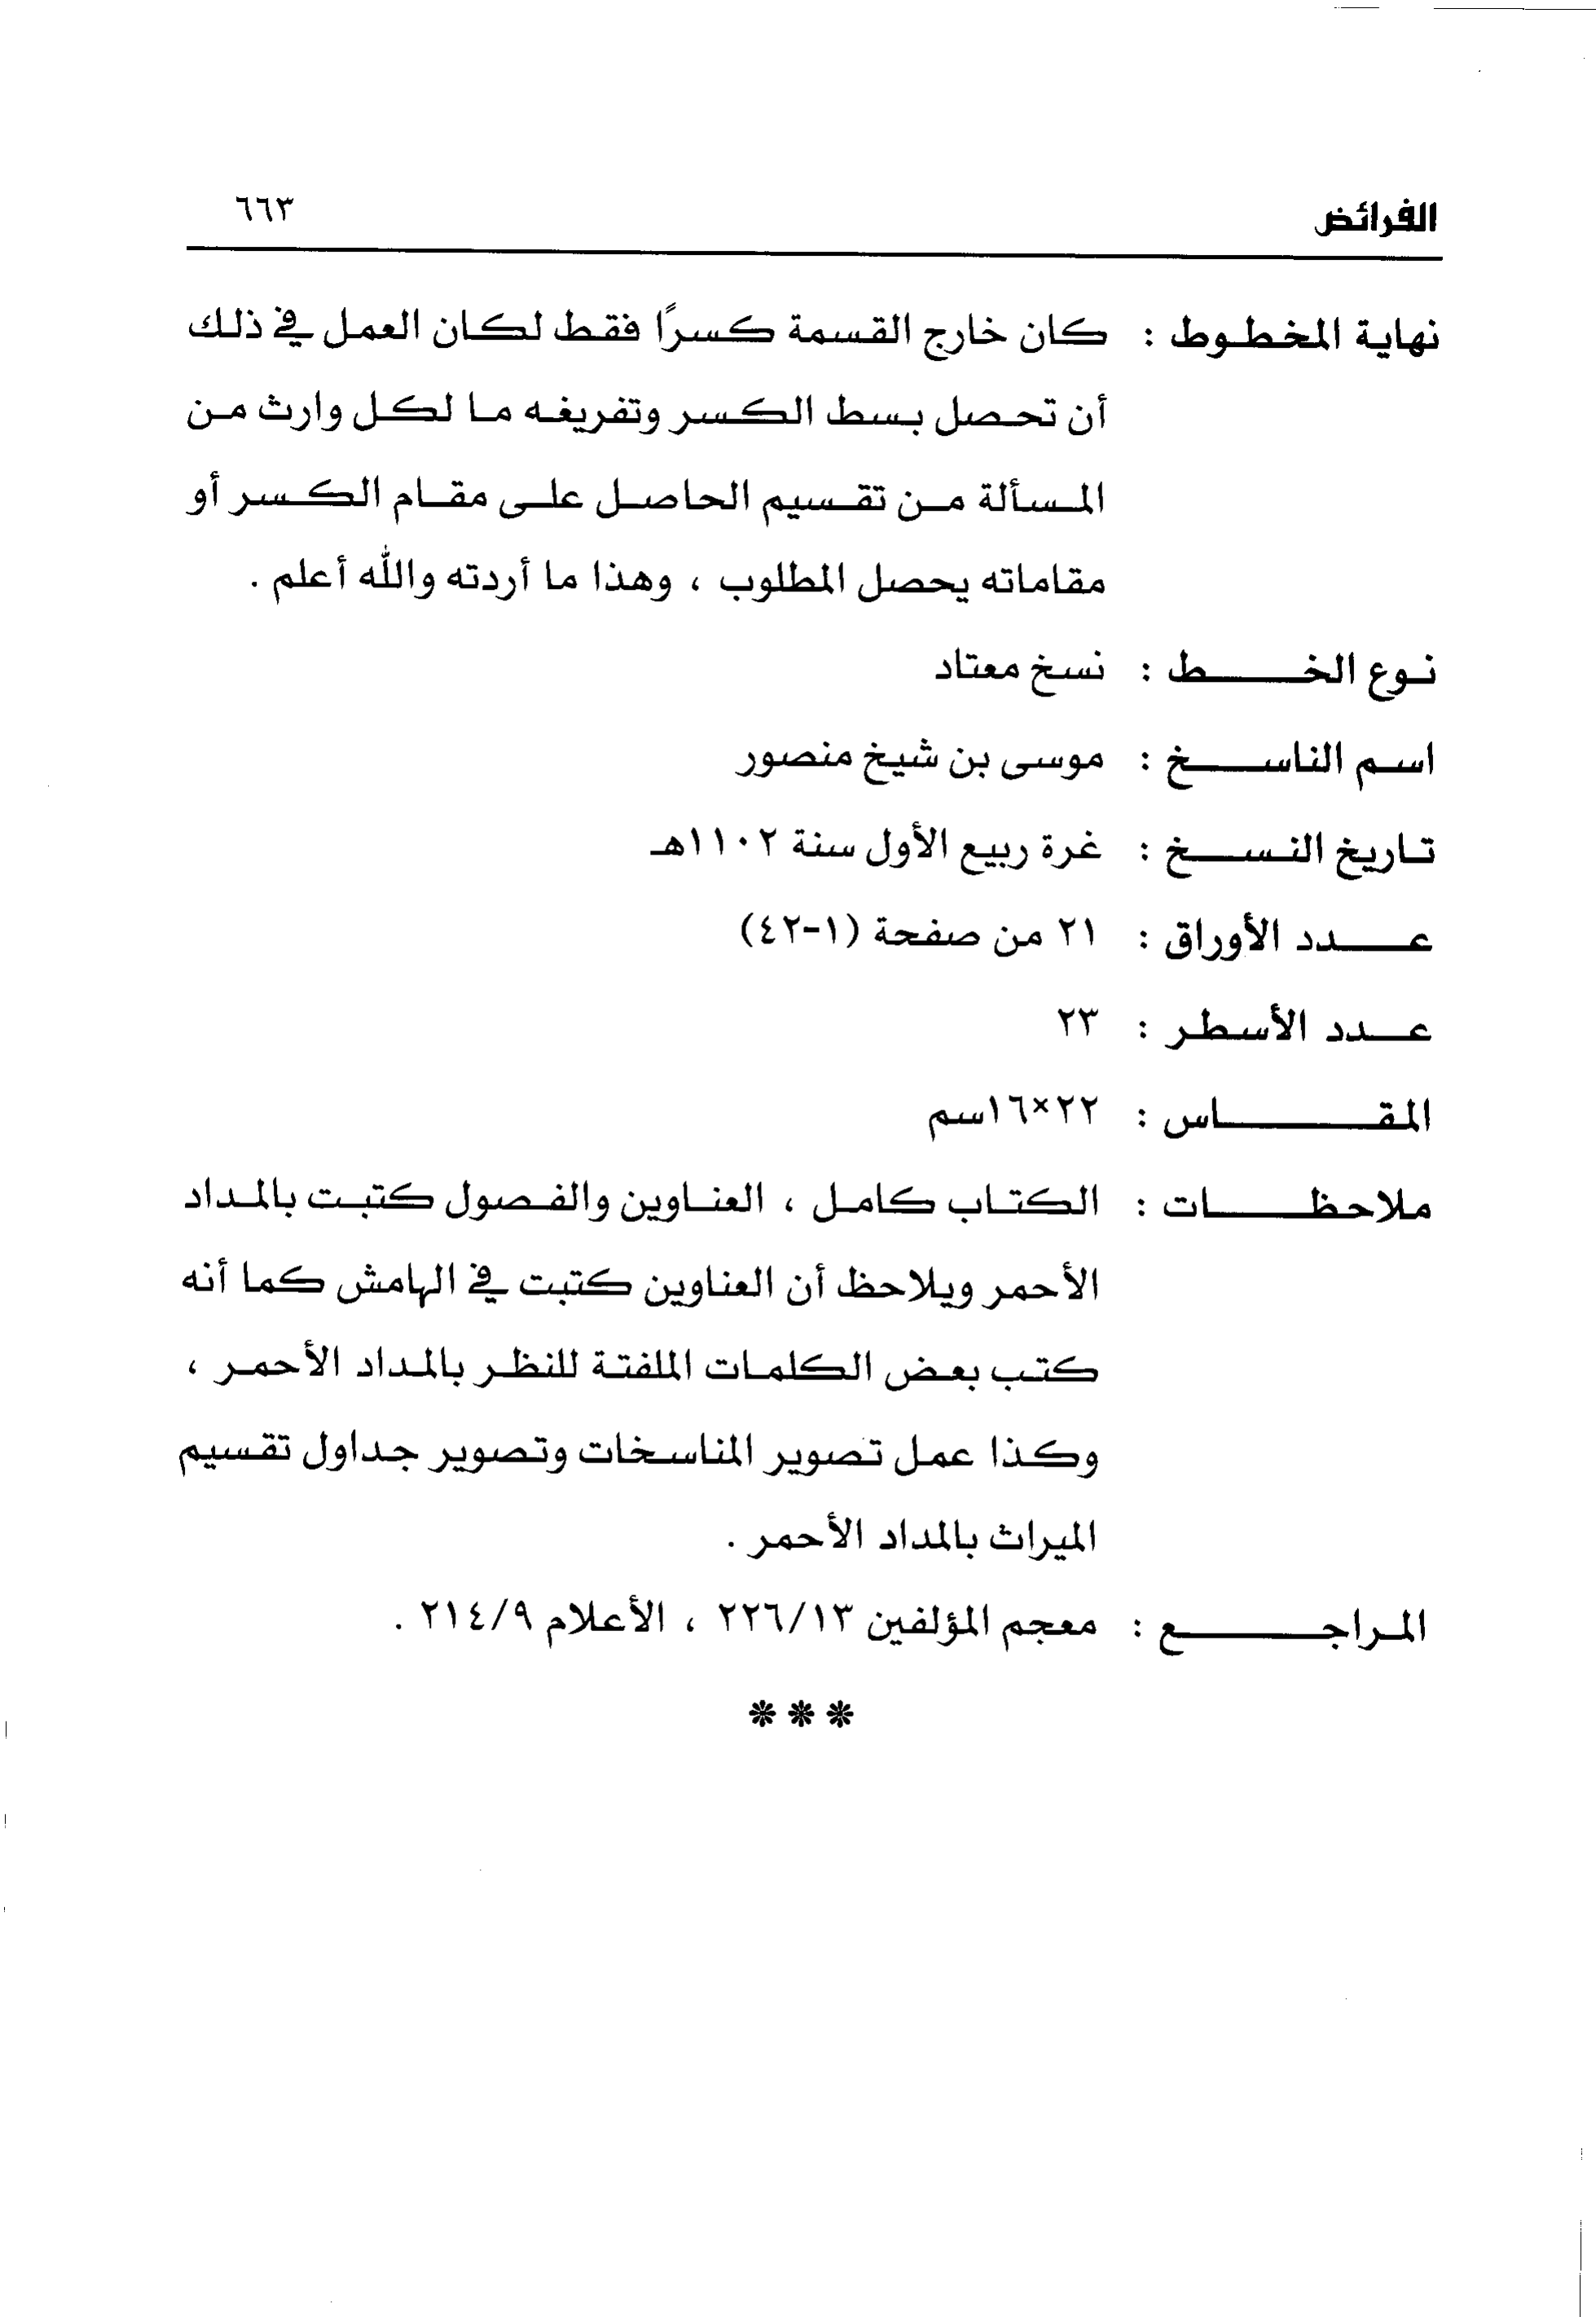 الفرائض ٦٦٣
نهاية المخطوط : كان خارج القسمة كسرًا فقط لكان العمل في ذلك
أن تحصل بسط الكسر وتفريغه ما لكل وارث من
المسألة من تقسيم الحاصل على مقام الكسر أو
مقاماته يحصل المطلوب ، وهذا ما أردته والله أعلم .
نوع الخط : نسخ معتاد
اسم الناسخ : موسى بن شيخ منصور
تاريخ النسخ : غرة ربيع الأول سنة ١١٠٢هـ
عدد الأوراق : ٢١ من صفحة (١-٤٢)
عدد الأسطر : ٢٣
المقاس : ٢٢×١٦سم
ملاحظات : الكتاب كامل ، العناوين والفصول كتبت بالمداد
الأحمر ويلاحظ أن العناوين كتبت في الهامش كما أنه
كتب بعض الكلمات الملفتة للنظر بالمداد الأحمر ،
وكذا عمل تصوير المناسخات وتصوير جداول تقسيم
الميراث بالمداد الأحمر .
المراجع : معجم المؤلفين ٢٢٦/١٣ ، الأعلام ٢١٤/٩ .
***